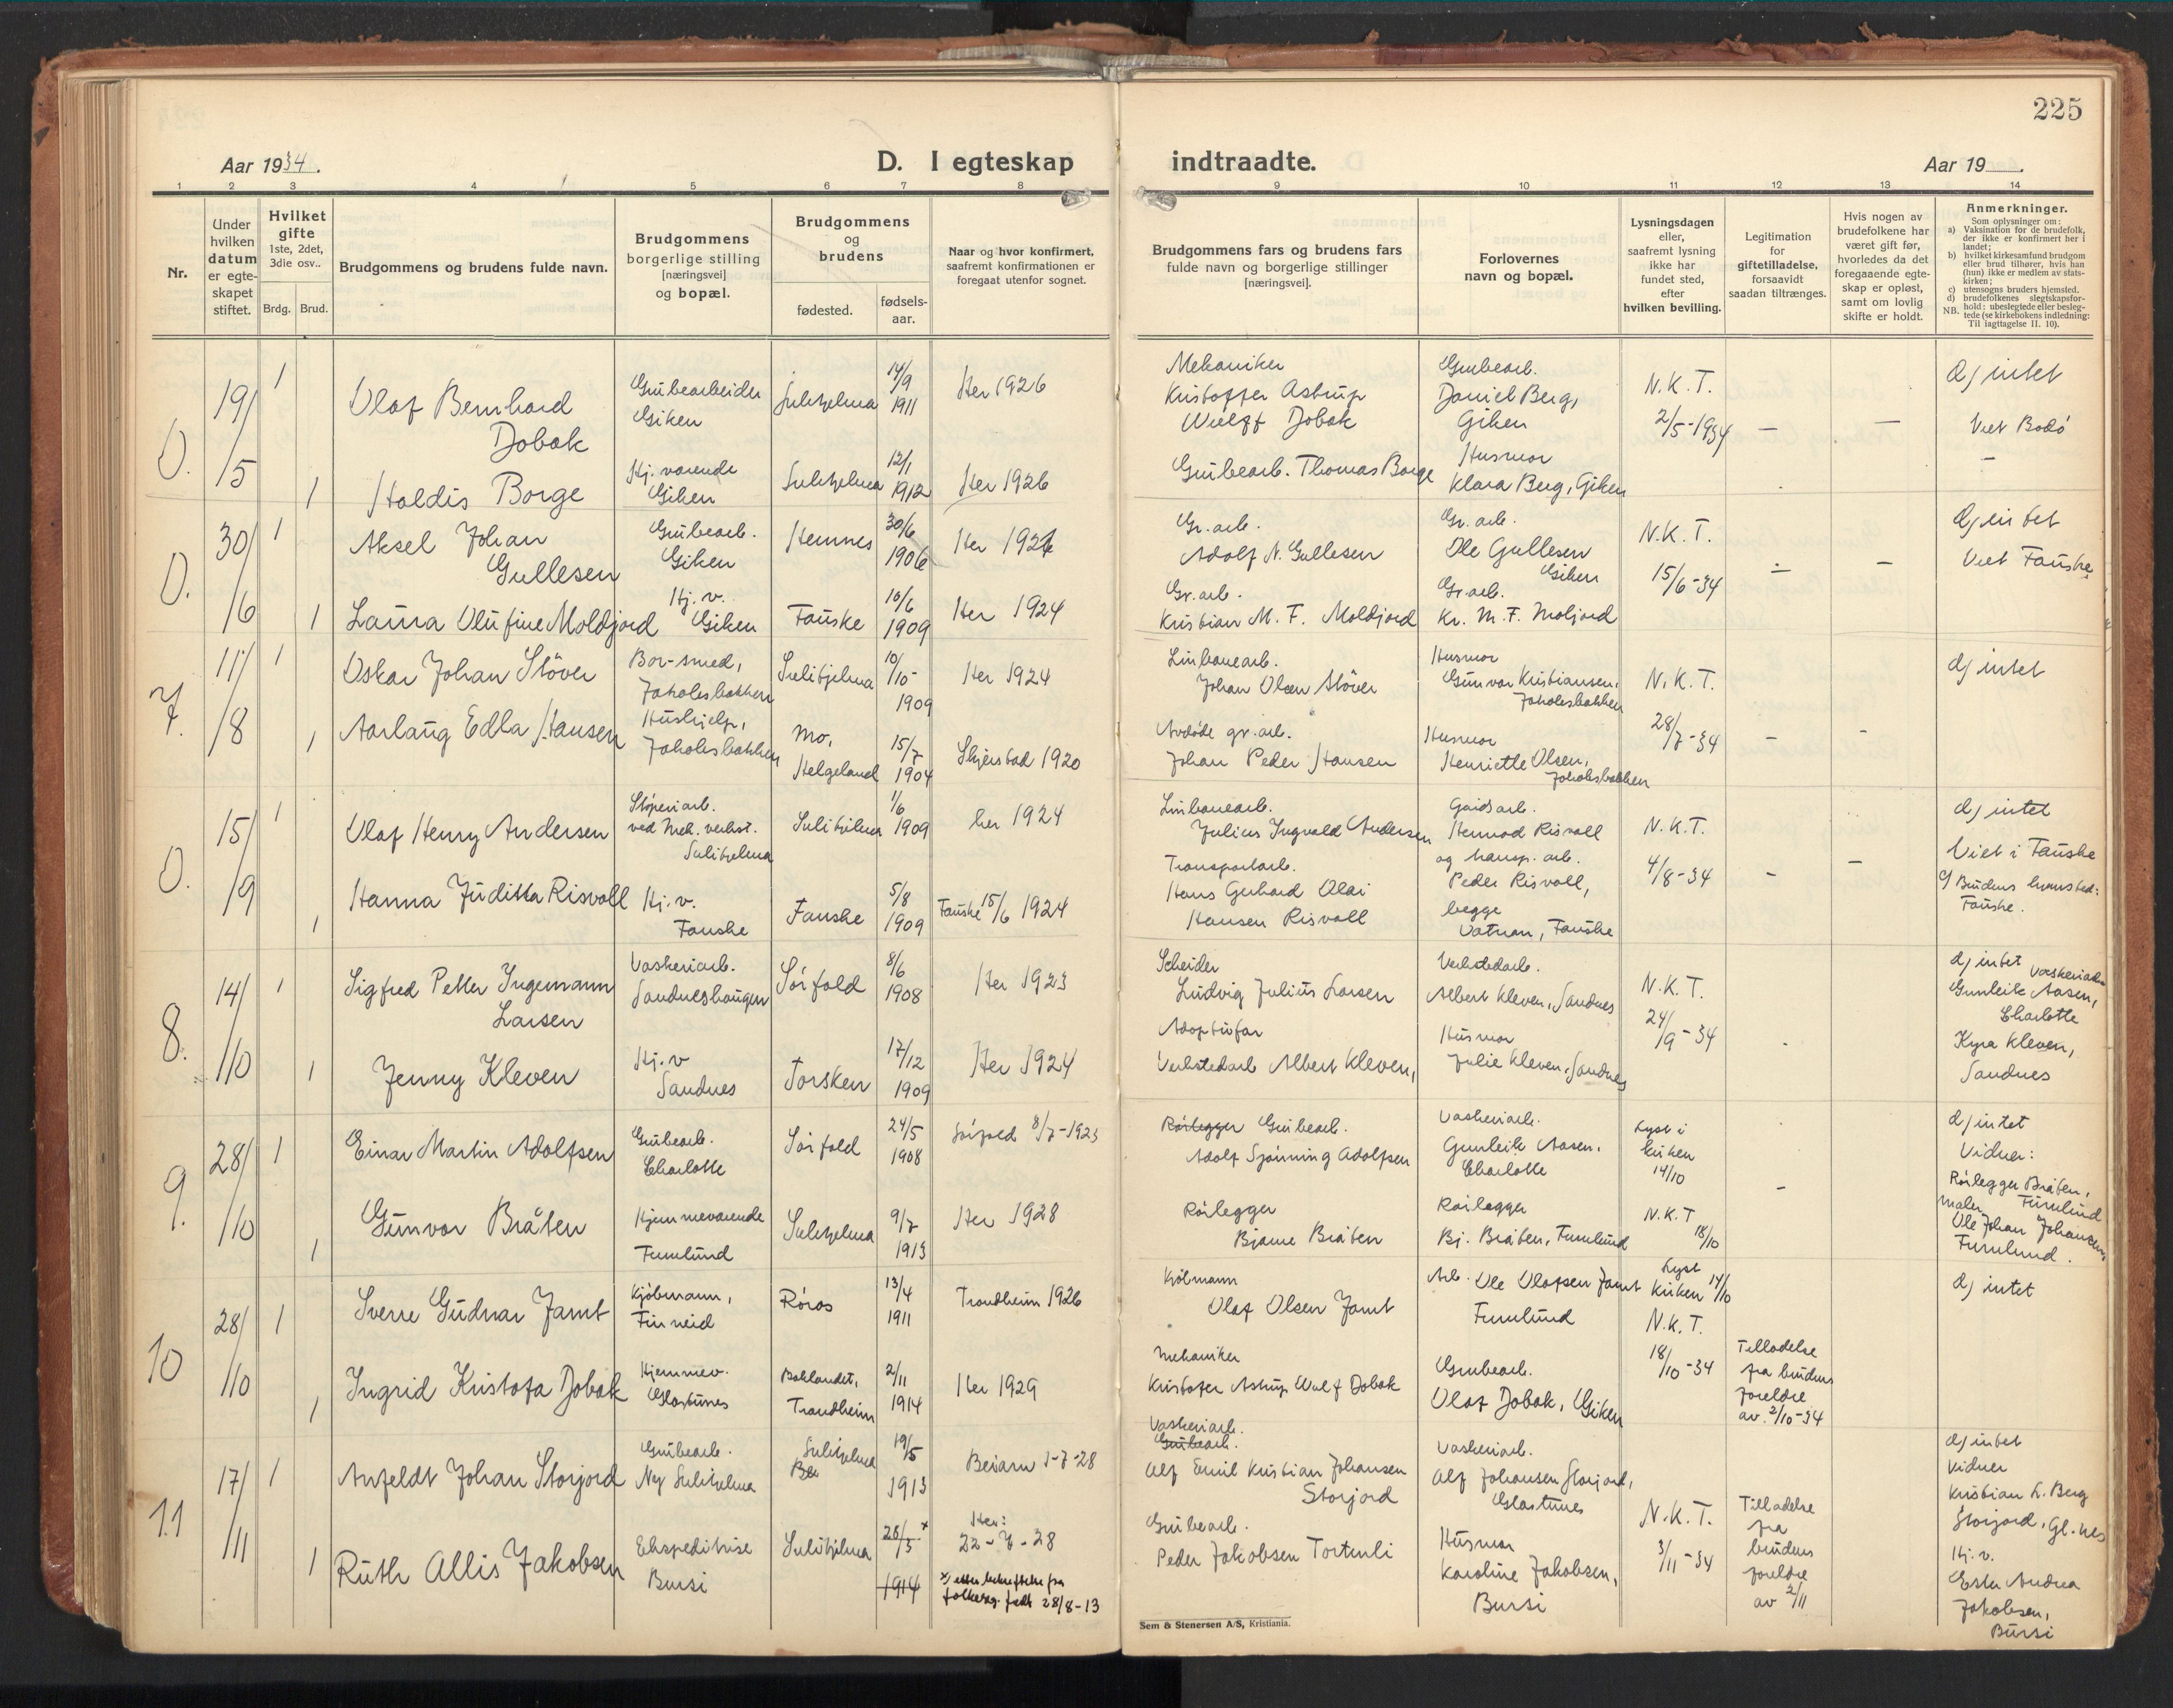 225
Aar 1934.
D. I egteskap indtraadte.
Aar 19
1 2 3 4 5 6 7 8 9 10 11 12 13 14
Nr.
Under hvilken datum er egte-skapet stiftet.
Hvilket gifte 1ste, 2det, 3die osv..
Brdg. Brud.
Brudgommens og brudens fulde navn.
Brudgommens borgerlige stilling [næringsvei] og bopæl.
Brudgommens og brudens
fødested.
fødsels-aar.
Naar og hvor konfirmert, saafremt konfirmationen er foregaat utenfor sognet.
Brudgommens fars og brudens fars fulde navn og borgerlige stillinger [næringsvei].
Forlovernes navn og bopæl.
Lysningsdagen eller, saafremt lysning ikke har fundet sted, efter hvilken bevilling.
Legitimation for giftetilladelse, forsaavidt saadan tiltrænges.
Hvis nogen av brudefolkene har været gift før, hvorledes da det foregaaende egte-skap er opløst, samt om lovlig skifte er holdt.
Anmerkninger.
Som oplysninger om:
a) Vaksination for de brudefolk, der ikke er konfirmert her i landet;
b) hvilket kirkesamfund brudgom eller brud tilhører, hvis han (hun) ikke er medlem av stats-kirken;
c) utensogns bruders hjemsted.
d) brudefolkenes slegtskapsfor-hold: ubeslegtede eller besleg-tede (se kirkebokens indledning: Til iagttagelse II. 10).
NB.
0.
19/5
1
Olaf Bernhard Dobak
Grubearbeider
Giken
Sulitjelma
14/9 1911
Her 1926
Mekaniker
Kristoffer Astrup
Wulff Dobak
Grubearb.
Daniel Berg,
Giken
N.K.T.
2/5-1934
—
—
d) intet
Viet Bodø
1
Haldis Borge
Hj. værende
Giken
Sulitjelma
12/1 1912
Her 1926
Grubearb. Thomas Borge
Husmor
Klara Berg, Giken
0.
30/6
1
Aksel Johan Gullesen
Grubearb.
Giken
Hemnes
30/6 1906
Her 1926
Gr. arb.
Adolf N. Gullesen
Gr. arb.
Ole Gullesen
Giken
N.K.T.
15/6-34
—
—
d) intet
Viet Fauske
1
Laura Olufine Moldjord
Hj. v.
Giken
Fauske
10/6 1909
Her 1924
Gr. arb.
Kristian M. F. Moldjord
Gr. arb.
Kr. M. F. Moljord
7.
11/8
1
Oskar Johan Støver
Bor-smed,
Jakobsbakken
Sulitjelma
10/10- 1909
Her 1924
Linbanearb.
Johan Olsen Støver
Husmor
Gunvor Kristiansen,
Jakobsbakken
N.K.T.
28/7-34
-
-
d) intet
1
Aarlaug Edla Hansen
Hushjelp,
Jakobsbakken
Mo,
Helgeland
15/7 1904
Skjerstad 1920
Avdøde gr. arb.
Johan Peder Hansen
Husmor
Henriette Olsen,
Jakobsbakken
0.
15/9
1
Olaf Henry Andersen
Støperiarb.
ved Mek. verkst.
Sulitjelma
Sulitjelma
1/6 1909
her 1924
Linbanearb.
Julius Ingvald Andersen
Gardsarb.
Hermod Risvoll
og transp. arb.
Peder Risvoll,
begge
Vatnan, Fauske
N.K.T.
4/8-34
-
—
d) intet
Viet i Fauske
c) Brudens hjemsted:
Fauske.
1
Hanna Juditha Risvoll
Hj. v.
Fauske
Fauske
5/8 1909
Fauske 15/6 1924
Transportarb.
Hans Gerhard Olai
Hansen Risvoll
8.
14/10
1
Sigfred Petter Ingemann
Larsen
Vaskeriarb.
Sandneshaugen
Sørfold
8/6 1908
Her 1923
Scheider
Ludvig Julius Larsen
Verkstedarb.
Albert Kleven, Sandnes
N.K.T.
24/9-34
d) intet Vaskeriarb.
Gunleik Aasen,
Charlotte
Kyra Kleven,
Sandnes
1
Jenny Kleven
Hj. v
Sandnes
Torsken
17/12 1909
Her 1924
Adoptivfar
Verkstedarb Albert Kleven,
Husmor
Julie Kleven, Sandnes
9.
28/10
1
Einar Martin Adolfsen
Grubearb.
Charlotte
Sørfold
24/5 1908
Sørfold 8/7-1923
Rørlegger Grubearb.
Adolf Sjønning Adolfsen
Vaskeriarb.
Gunleik Aasen,
Charlotte
Lyst i
kirken
14/10
N.K.T
18/10
-
d) intet
Vidner:
Rørlegger Bråten,
Furulund
maler
Ole Johan Johansen,
Furulund.
1
Gunvor Bråten
Hjemmeværende
Furulund
Sulitjelma
9/7 1913
Her 1928
Rørlegger
Bjarne Bråten
Rørlegger
Bj. Bråten, Furulund
10
28/10
1
Sverre Gudnar Jamt
Kjøbmann,
Finneid
Røros
13/4 1911
Trondheim 1926
Kjøbmann
Olaf Olsen Jamt
Arb. Ole Olafsen Jamt
Furulund
Lyst
kirken 14/10
N.K.T.
18/10-34
Tilladelse
fra brudens
foreldre
av 2/10-34
d) intet
1
Ingrid Kristofa Dobak
Hjemmev.
Glastunes
Baklandet,
Trondheim
2/11 1914
Her 1929
Mekaniker
Kristofer Astrup Wulf Dobak
Grubearb.
Olaf Dobak, Giken
11
17/11
1
Anfeldt Johan Storjord
Grubearb.
Ny Sulitjelma
Sulitjelma
Be
19/5 1913
Beiarn 1-7-28
Vaskeriarb.
Grubearb.
Alf Emil Kristian Johansen
Storjord
Vaskeriarb.
Alf Johansen Storjord,
Glastunes
N.K.T.
3/11-34
Tilladelse
fra
brudens
foreldre
av 2/11
d) intet
Vidner
Kristian L. Berg
Storjord, Gl.nes
Hj. v.
Ester Andrea
Jakobsen,
Bursi
1
Ruth Allis Jakobsen
Ekspeditrise
Bursi
Sulitjelma
28/5 x
1914
Her:
22-7-28
x) etter bekreftelse fra
folkereg. født 28/8-13
Grubearb.
Peder Jakobsen Tortenli
Husmor
Karoline Jakobsen,
Bursi
Sem & Stenersen A/S, Kristiania.